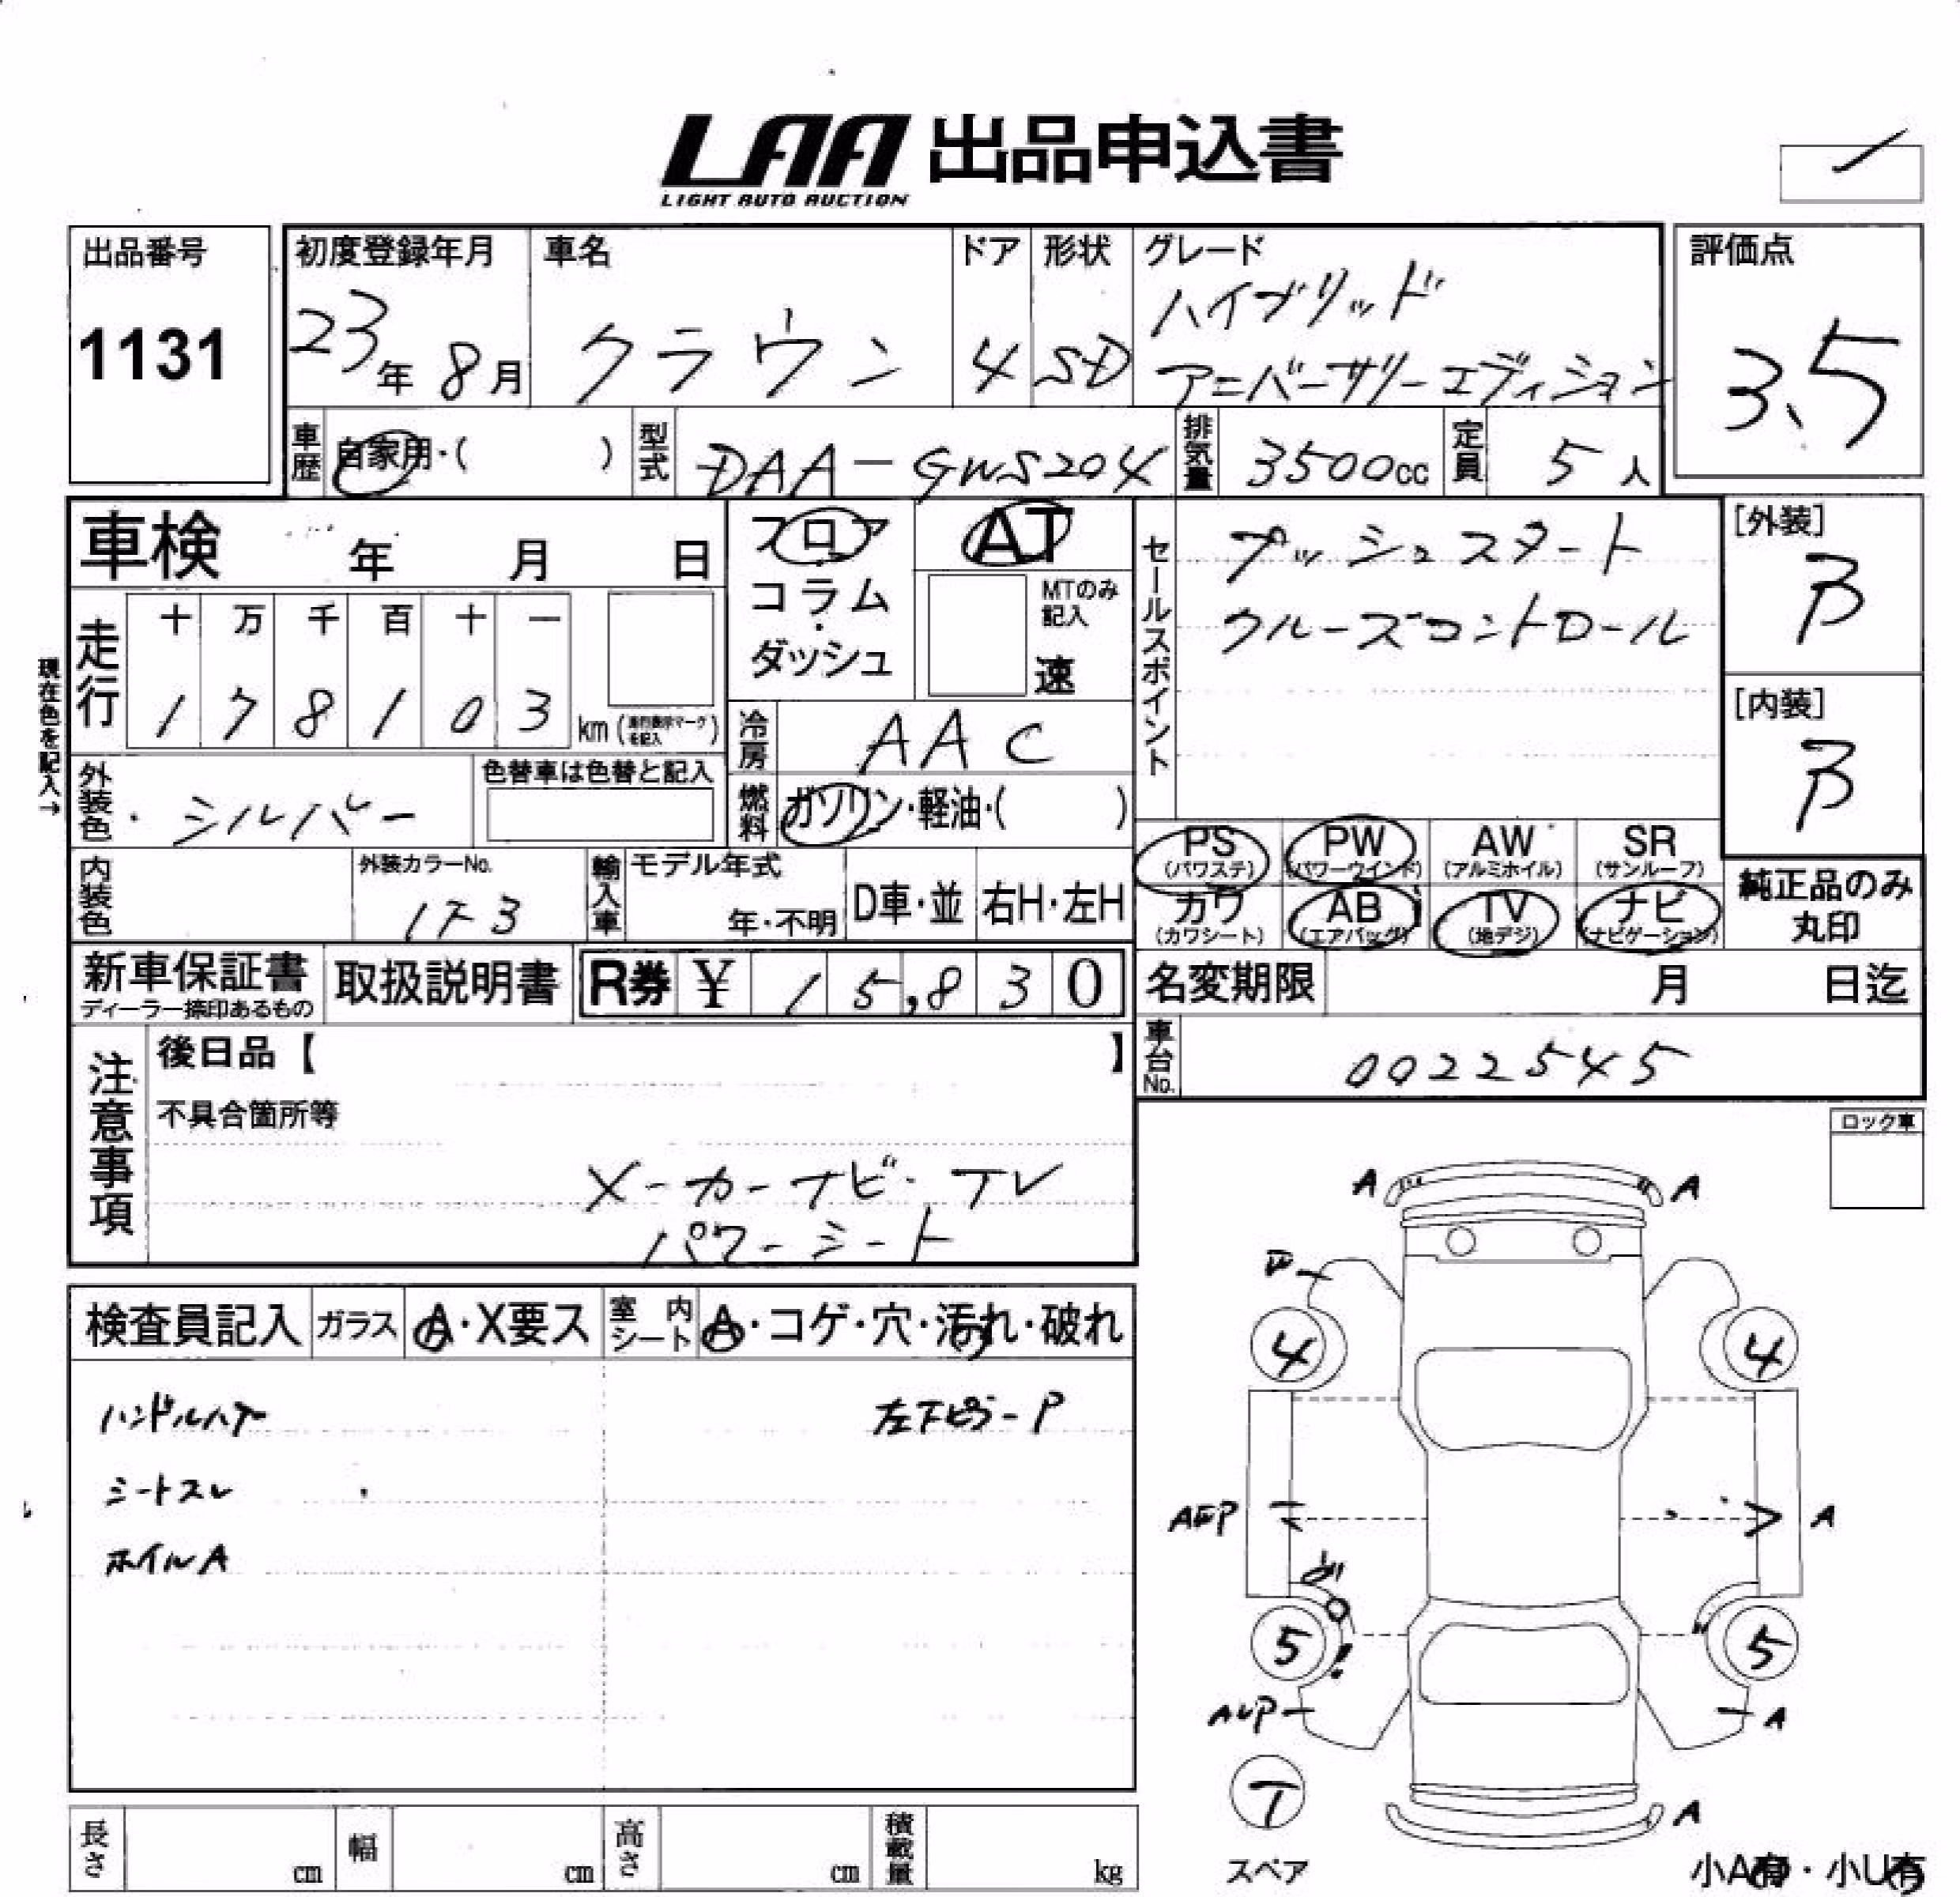 LAA 出品申込書
LIGHT AUTO AUCTION
出品番号
1131
初度登録年月
23年 8月
車名
クラウン
ドア
4
形状
SD
グレード
ハイブリッド
アニバーサリーエディション
評価点
3.5
車歴
自家用・( )
型式
DAA-GWS204
排気量
3500cc
定員
5人
車検 年 月 日
フロア
コラム
・
ダッシュ
AT
MTのみ
記入
速
セールスポイント
プッシュスタート
クルーズコントロール
[外装]
B
[内装]
B
現在色を記入→
走行
十 万 千 百 十 一
1 7 8 1 0 3
km (走行表示マークを記入)
冷房
AAC
外装色
シルバー
色替車は色替と記入
燃料
ガソリン・軽油・( )
PS
(パワステ)
PW
(パワーウインド)
AW
(アルミホイル)
SR
(サンルーフ)
カワ
(カワシート)
AB
(エアバッグ)
TV
(地デジ)
ナビ
(ナビゲーション)
純正品のみ
丸印
内装色
外装カラーNo.
1F3
輸入車
モデル年式
年・不明
D車・並
右H・左H
新車保証書
ディーラー捺印あるもの
取扱説明書
R券 ¥ 15,830
名変期限 月 日迄
車台No.
0022545
注意事項
後日品【 】
不具合箇所等
メーカーナビ・TV
パワーシート
ロック車
検査員記入
ガラス
A・X要ス
室内シート
A・コゲ・穴・汚れ・破れ
ハンドルハゲ
左下ピラーP
シートスレ
ホイルA
A
A
4
4
AEP
A
5
5
AUP
A
T
スペア
A
長さ cm
幅 cm
高さ cm
積載量 kg
小A有・小U有